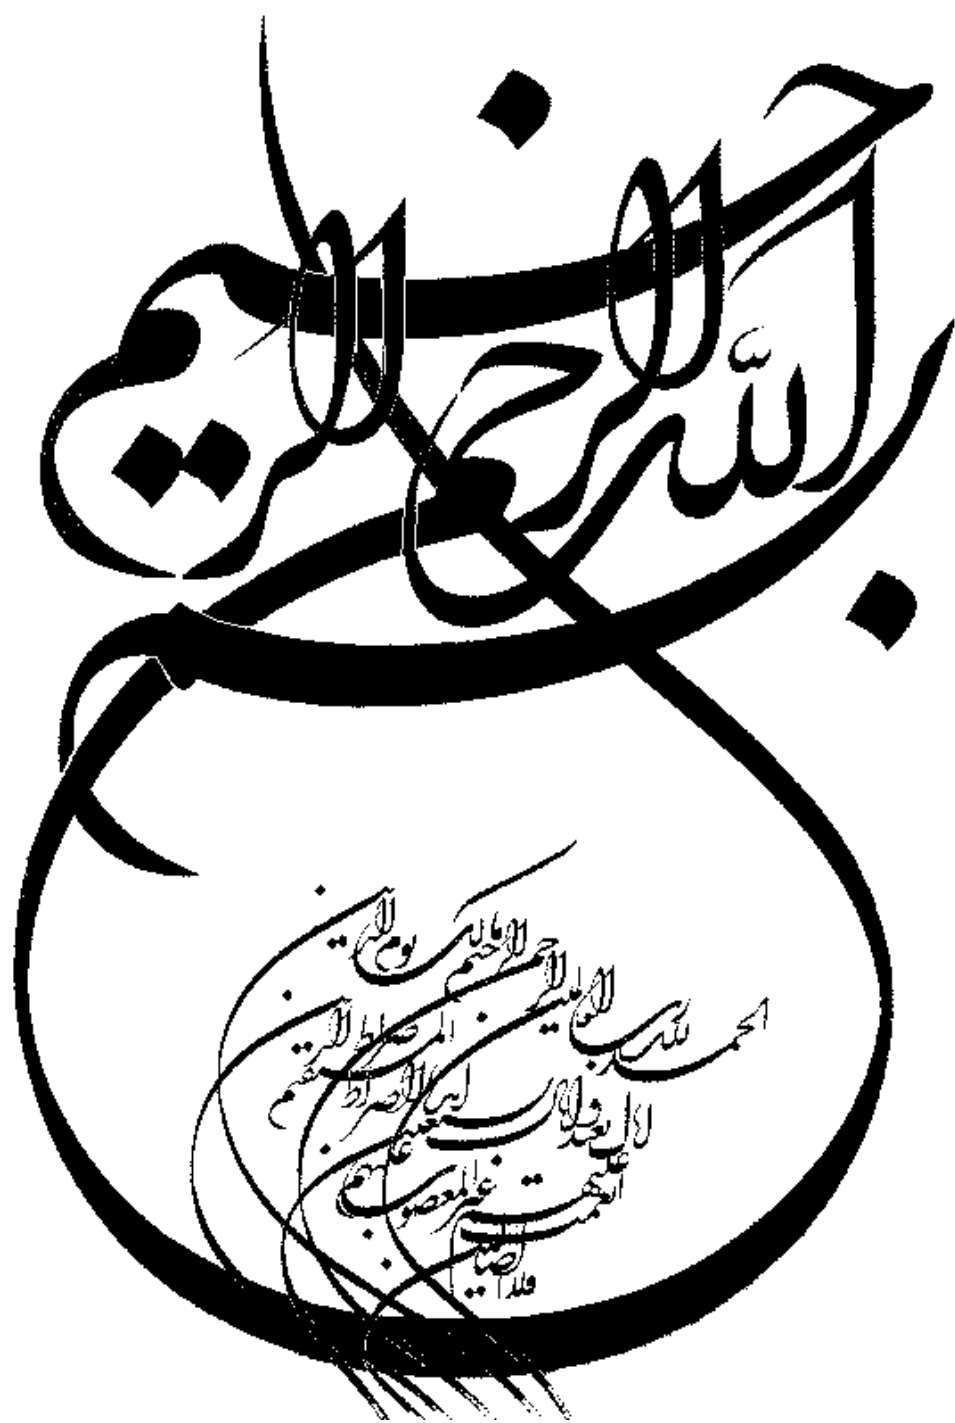 بسم الله الرحمن الرحيم
الحمد لله رب العالمين
الرحمن الرحيم
مالك يوم الدين
اياك نعبد و اياك نستعين
اهدنا الصراط المستقيم
صراط الذين
انعمت عليهم
غير المغضوب عليهم
ولا الضالين